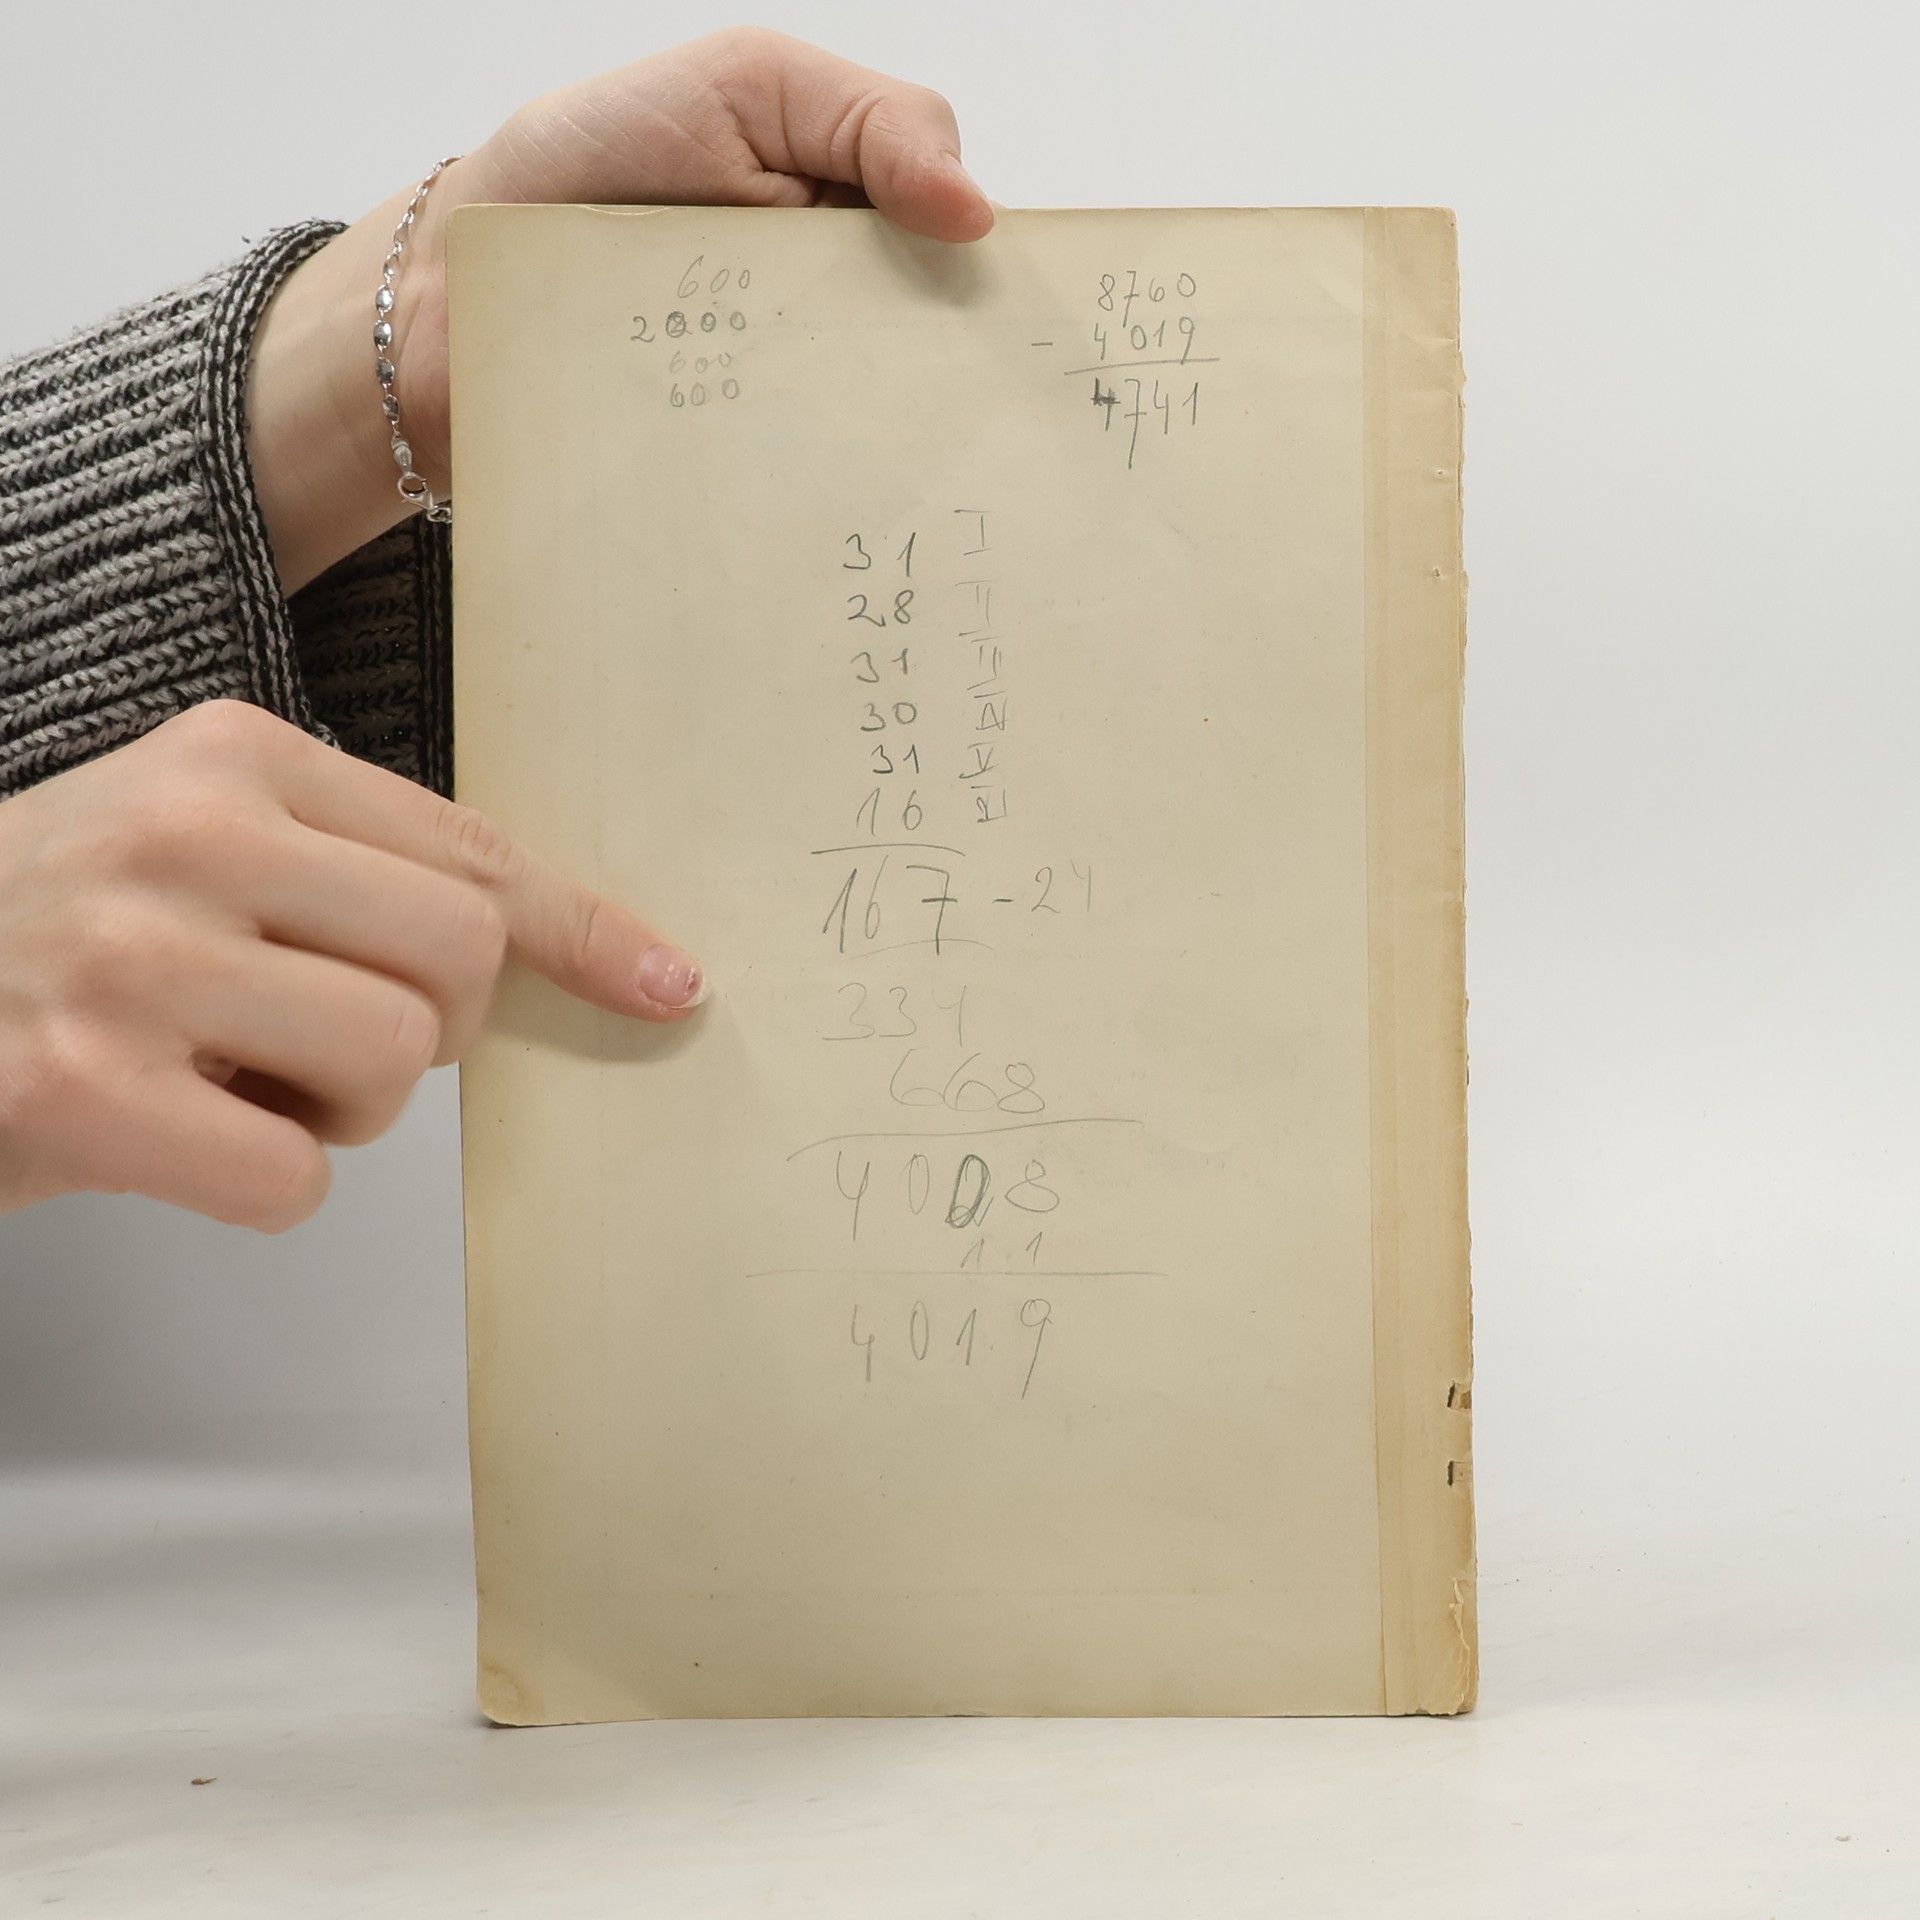 600
2000
600
600
8760
- 4019
4741
31 I
28 II
31 III
30 IV
31 V
16 VI
167 - 24
334
668
4008
11
4019